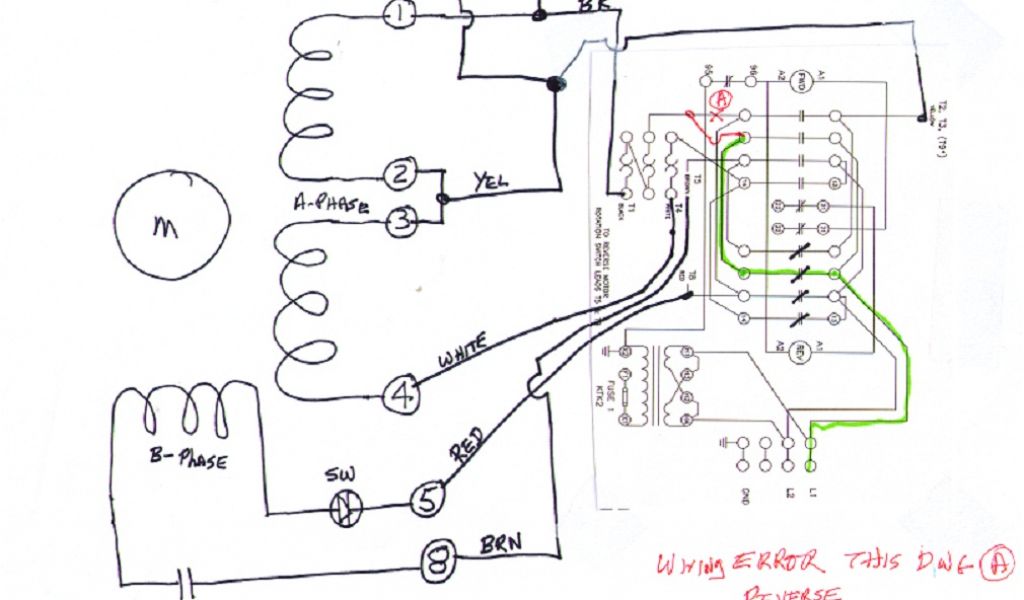 1
BK
95
96
A2
FWD
A1
A
T2, T3, (T5+)
YELLOW
2
YEL
A-PHASE
3
M
T1
BLACK
T4
WHITE
T5
BROWN
T8
RED
TO REVERSE MOTOR
ROTATION SWITCH LEADS T5
A2
REV
A1
WHITE
4
FUSE 1
KTK2
B-PHASE
RED
SW
5
GND
L2
L1
8
BRN
WIRING ERROR THIS DWG A
REVERSE